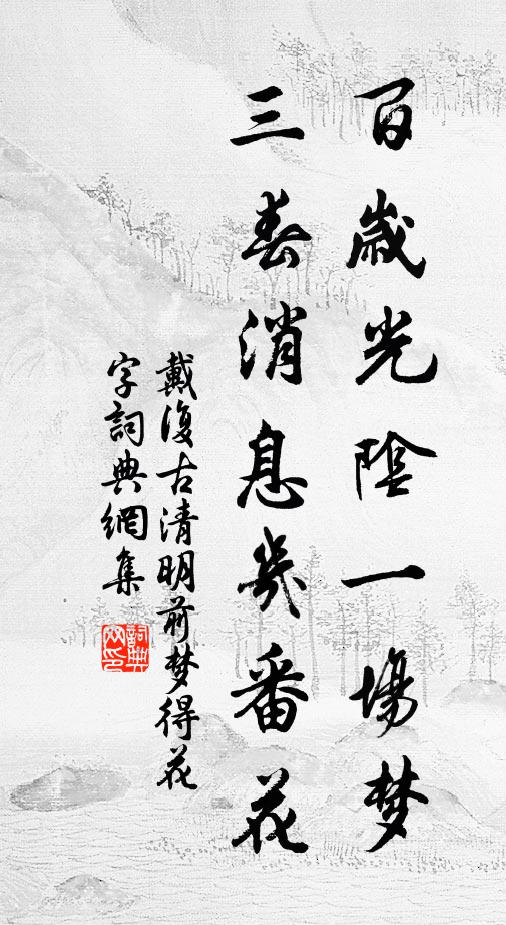 百歲光陰一場梦
三春消息幾番花
戴復古清明前梦得花
字詞典網集
詞典网印